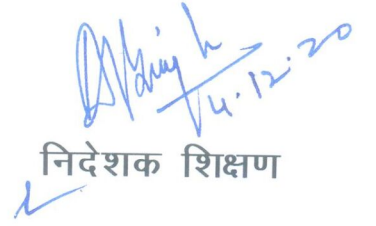 4.12.20
निदेशक शिक्षण